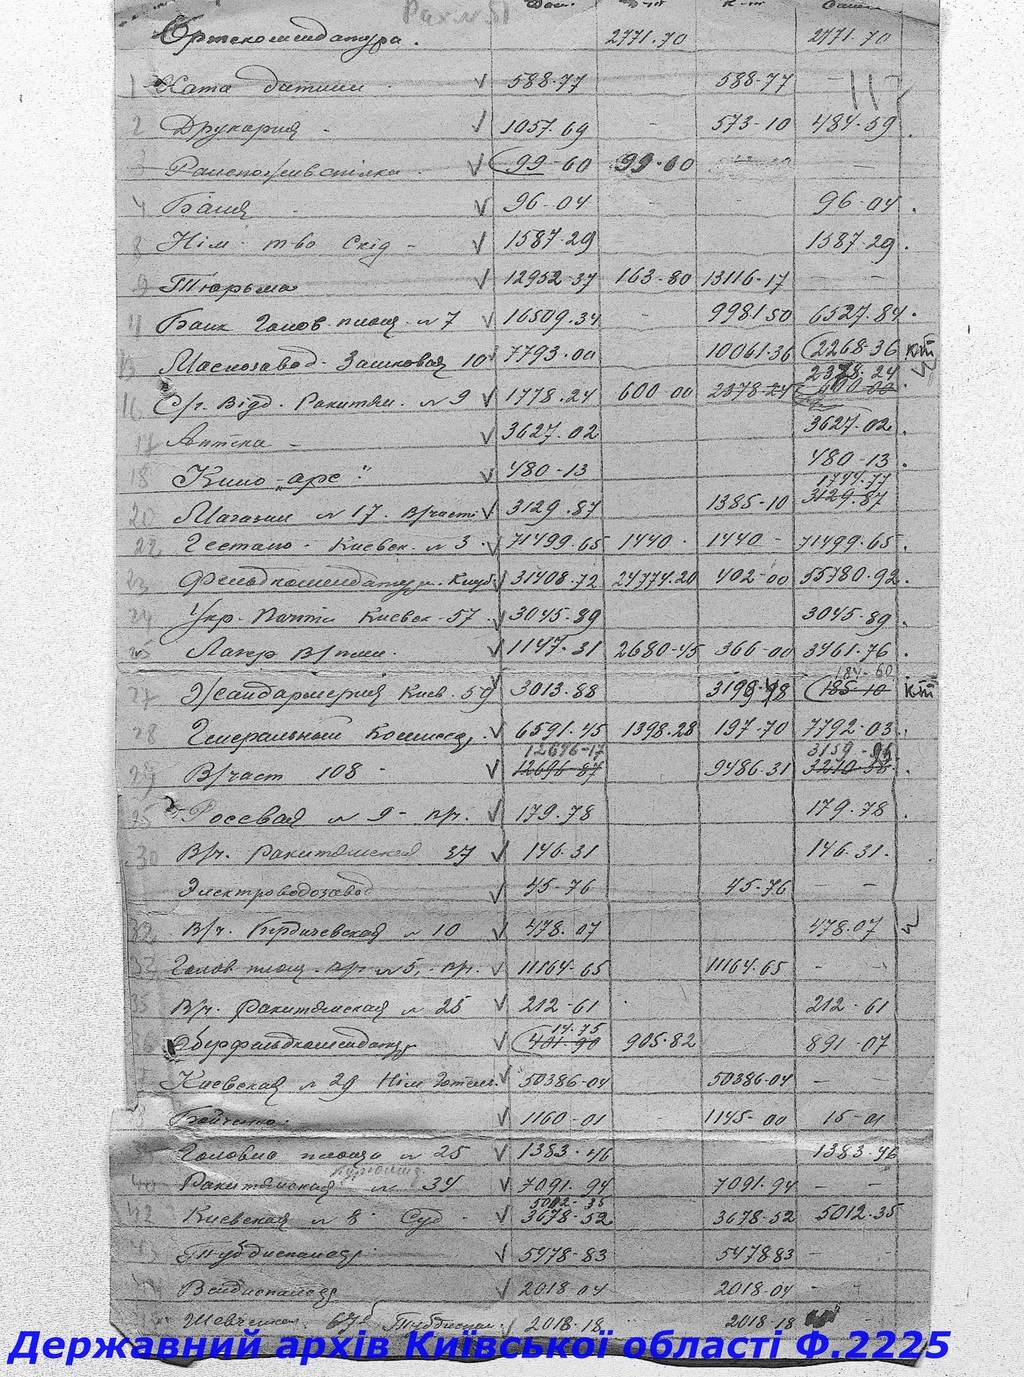 Рах №51
Ортскомендатура. 2771.70 2771.70
117
1 Хата дитини 588.77 588.77 -
2 Друкарня - 1057.69 - 573-10 484-59
3 99-60 99-60 -
4 Баня - 96-04 - - 96-04
8 Нім. т-во Схід - 1587-29 1587-29
9 Тюрьма 12952-37 163-80 13116-17 - -
11 Банк Голов. площ. №7 16509.34 - 9981 50 6527.84
13 Маслозавод - Замковая 10 7793.00 10061.36 2268.36 к-т
2378-24
16 С/г. Відд. Ракитян. №9 1778.24 600-00 2378-24 600-00
17 Аптека - 3627.02 3627.02
18 Кино "арс" 480-13 480-13
1744.77
20 Магазин №17. В/части 3129.87 1385-10 3129.87
22 Гестапо - Киевск. №3 71499.65 1440 - 1440 - 71499.65
23 Фельдкомендатура. Клуб 31408.72 24774.20 402-00 55780.92
24 Укр. Пошти Киевск-57 3045.89 3045.89
25 Лагер В/плен. 1147-31 2680-45 366-00 3461.76
184-60
27 Жандармерия Киев. 59 3013.88 3198.48 185-10 к-т
28 Генеральный Комисар. 6591.45 1398.28 197-70 7792-03
12646-17 3159-86
29 В/част 108 - 12696-87 9486.31 3210-56
Росевая №9 - вч. 179.78 179.78
30 В/ч. Ракитянская 37 146.31 146.31.
Электроводозавод 45-76 45.76 - -
32 В/ч. Бердичевская №10 478.07 478.07
33 Голов. площ. - вр. №5. - вр. 11164-65 11164.65 - -
35 В/ч. Ракитянская №25 212-61 212.61
14.75
36 Оберфельдкомендат. 401-90 905.82 891-07
Киевская №29 Нім. Готель. 50386-04 50386-04 - -
Бойченко. 1160-01 - 1145-00 15-01
Головна площа №25 1383.46 1383.46
40 Ракитянская №34 7091.94 7091.94 - -
5012-35
42 Киевская №8 Суд - 3678-52 3678-52 5012.35
43 Тубдиспансер 5478-83 547883 -
Вендиспансер 2018-04 2018-04 - -
Шевченк. 67 Тубдиспан. 2018-18 2018 18
Державний архів Київської області Ф.2225